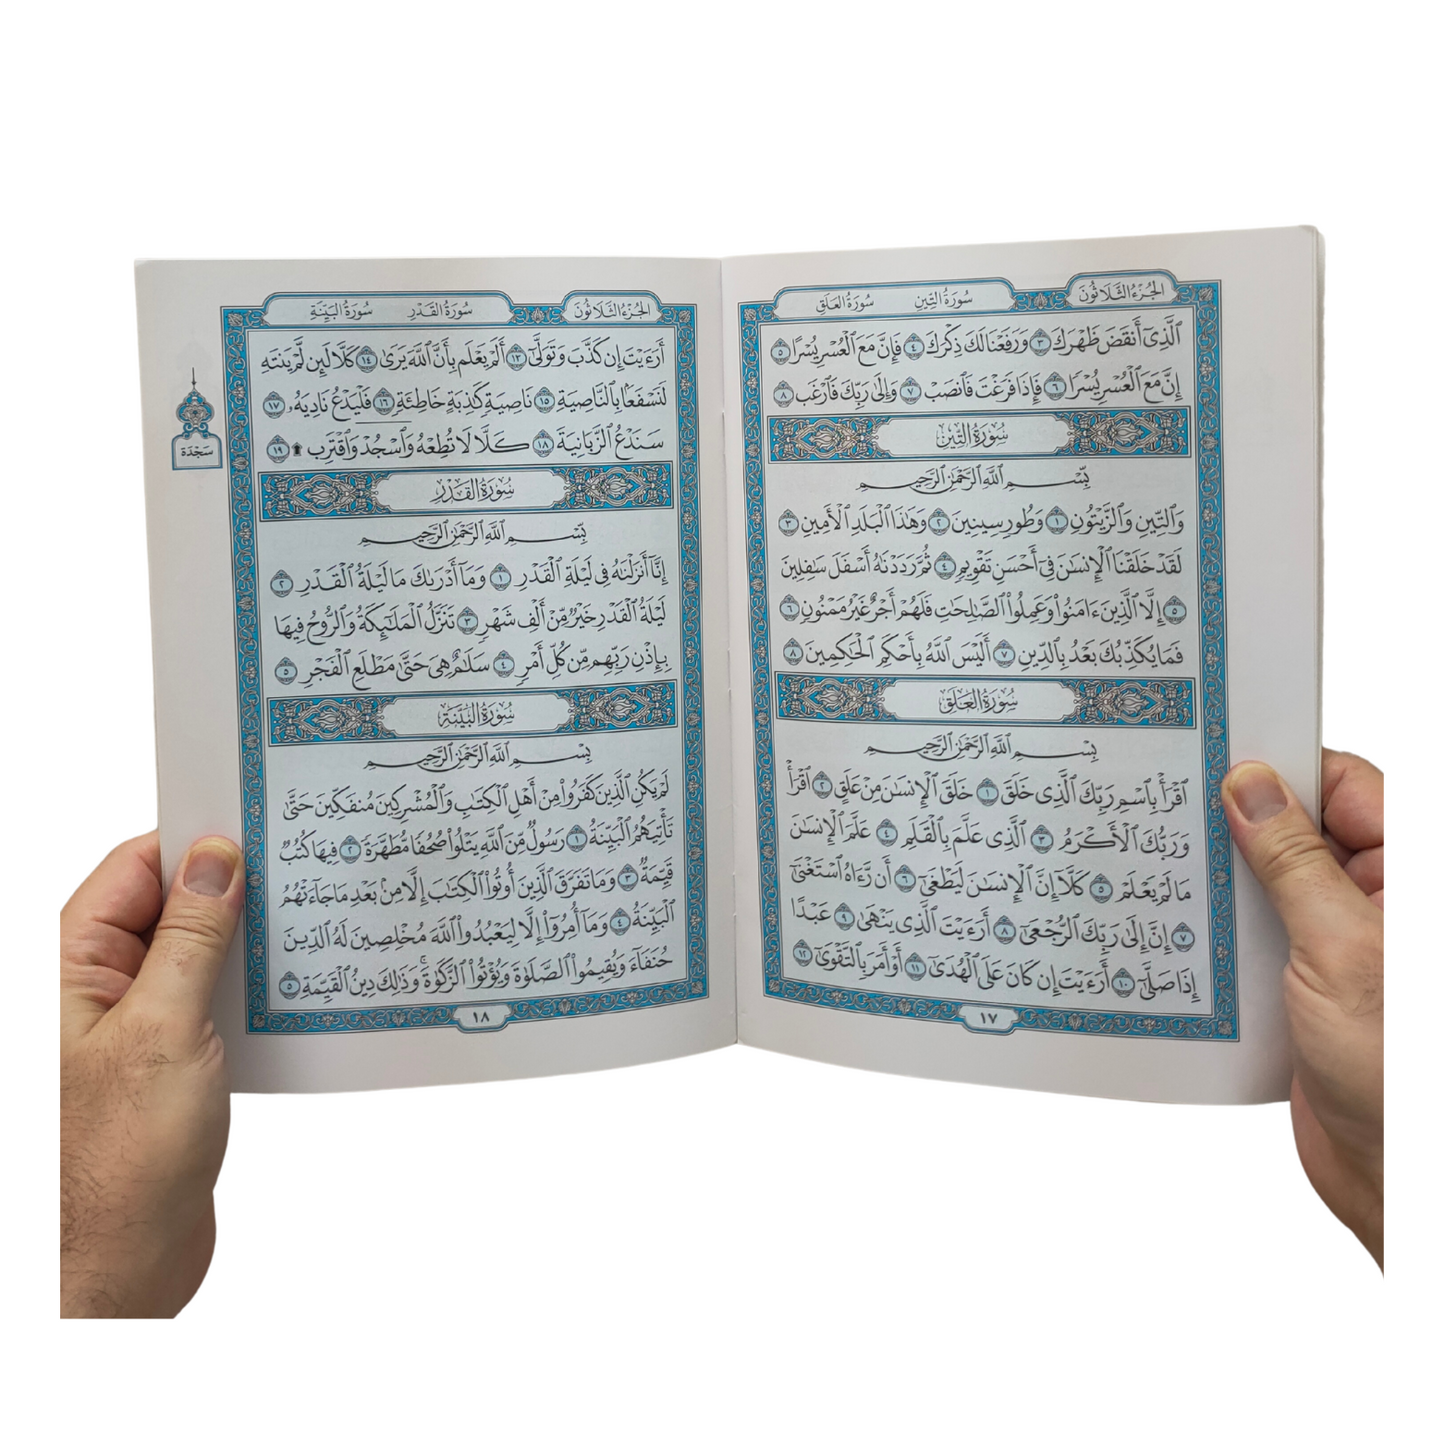 الجُزْءُ الثَّلَاثُونَ
سُورَةُ التِّينِ
سُورَةُ العَلَقِ
ٱلَّذِىٓ أَنقَضَ ظَهْرَكَ ٣ وَرَفَعْنَا لَكَ ذِكْرَكَ ٤ فَإِنَّ مَعَ ٱلْعُسْرِ يُسْرًا ٥
إِنَّ مَعَ ٱلْعُسْرِ يُسْرًا ٦ فَإِذَا فَرَغْتَ فَٱنصَبْ ٧ وَإِلَىٰ رَبِّكَ فَٱرْغَب ٨
سُورَةُ التِّينِ
بِسْمِ ٱللَّهِ ٱلرَّحْمَٰنِ ٱلرَّحِيمِ
وَٱلتِّينِ وَٱلزَّيْتُونِ ١ وَطُورِ سِينِينَ ٢ وَهَٰذَا ٱلْبَلَدِ ٱلْأَمِينِ ٣
لَقَدْ خَلَقْنَا ٱلْإِنسَٰنَ فِىٓ أَحْسَنِ تَقْوِيمٍ ٤ ثُمَّ رَدَدْنَٰهُ أَسْفَلَ سَٰفِلِينَ
٥ إِلَّا ٱلَّذِينَ ءَامَنُوا۟ وَعَمِلُوا۟ ٱلصَّٰلِحَٰتِ فَلَهُمْ أَجْرٌ غَيْرُ مَمْنُونٍ ٦
فَمَا يُكَذِّبُكَ بَعْدُ بِٱلدِّينِ ٧ أَلَيْسَ ٱللَّهُ بِأَحْكَمِ ٱلْحَٰكِمِينَ ٨
سُورَةُ العَلَقِ
بِسْمِ ٱللَّهِ ٱلرَّحْمَٰنِ ٱلرَّحِيمِ
ٱقْرَأْ بِٱسْمِ رَبِّكَ ٱلَّذِى خَلَقَ ١ خَلَقَ ٱلْإِنسَٰنَ مِنْ عَلَقٍ ٢ ٱقْرَأْ
وَرَبُّكَ ٱلْأَكْرَمُ ٣ ٱلَّذِى عَلَّمَ بِٱلْقَلَمِ ٤ عَلَّمَ ٱلْإِنسَٰنَ
مَا لَمْ يَعْلَمْ ٥ كَلَّآ إِنَّ ٱلْإِنسَٰنَ لَيَطْغَىٰٓ ٦ أَن رَّءَاهُ ٱسْتَغْنَىٰٓ
٧ إِنَّ إِلَىٰ رَبِّكَ ٱلرُّجْعَىٰٓ ٨ أَرَءَيْتَ ٱلَّذِى يَنْهَىٰ ٩ عَبْدًا
إِذَا صَلَّىٰٓ ١٠ أَرَءَيْتَ إِن كَانَ عَلَى ٱلْهُدَىٰٓ ١١ أَوْ أَمَرَ بِٱلتَّقْوَىٰٓ ١٢
١٧
الجُزْءُ الثَّلَاثُونَ
سُورَةُ القَدْرِ
سُورَةُ البَيِّنَةِ
أَرَءَيْتَ إِن كَذَّبَ وَتَوَلَّىٰٓ ١٣ أَلَمْ يَعْلَم بِأَنَّ ٱللَّهَ يَرَىٰ ١٤ كَلَّا لَئِن لَّمْ يَنتَهِ
لَنَسْفَعًۢا بِٱلنَّاصِيَةِ ١٥ نَاصِيَةٍ كَٰذِبَةٍ خَاطِئَةٍ ١٦ فَلْيَدْعُ نَادِيَهُۥ ١٧
سَنَدْعُ ٱلزَّبَانِيَةَ ١٨ كَلَّا لَا تُطِعْهُ وَٱسْجُدْ وَٱقْتَرِب ۩ ١٩
سَجْدَة
سُورَةُ القَدْرِ
بِسْمِ ٱللَّهِ ٱلرَّحْمَٰنِ ٱلرَّحِيمِ
إِنَّآ أَنزَلْنَٰهُ فِى لَيْلَةِ ٱلْقَدْرِ ١ وَمَآ أَدْرَىٰكَ مَا لَيْلَةُ ٱلْقَدْرِ ٢
لَيْلَةُ ٱلْقَدْرِ خَيْرٌ مِّنْ أَلْفِ شَهْرٍ ٣ تَنَزَّلُ ٱلْمَلَٰٓئِكَةُ وَٱلرُّوحُ فِيهَا
بِإِذْنِ رَبِّهِم مِّن كُلِّ أَمْرٍ ٤ سَلَٰمٌ هِىَ حَتَّىٰ مَطْلَعِ ٱلْفَجْرِ ٥
سُورَةُ البَيِّنَةِ
بِسْمِ ٱللَّهِ ٱلرَّحْمَٰنِ ٱلرَّحِيمِ
لَمْ يَكُنِ ٱلَّذِينَ كَفَرُوا۟ مِنْ أَهْلِ ٱلْكِتَٰبِ وَٱلْمُشْرِكِينَ مُنفَكِّينَ حَتَّىٰ
تَأْتِيَهُمُ ٱلْبَيِّنَةُ ١ رَسُولٌ مِّنَ ٱللَّهِ يَتْلُوا۟ صُحُفًا مُّطَهَّرَةً ٢ فِيهَا كُتُبٌ
قَيِّمَةٌ ٣ وَمَا تَفَرَّقَ ٱلَّذِينَ أُوتُوا۟ ٱلْكِتَٰبَ إِلَّا مِنۢ بَعْدِ مَا جَآءَتْهُمُ
ٱلْبَيِّنَةُ ٤ وَمَآ أُمِرُوٓا۟ إِلَّا لِيَعْبُدُوا۟ ٱللَّهَ مُخْلِصِينَ لَهُ ٱلدِّينَ
حُنَفَآءَ وَيُقِيمُوا۟ ٱلصَّلَوٰةَ وَيُؤْتُوا۟ ٱلزَّكَوٰةَ ۚ وَذَٰلِكَ دِينُ ٱلْقَيِّمَةِ ٥
١٨